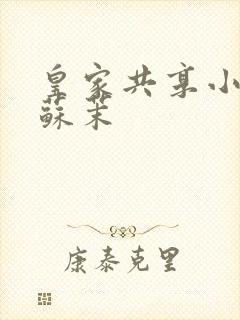 皇家共享小
蘇茉
康泰克里